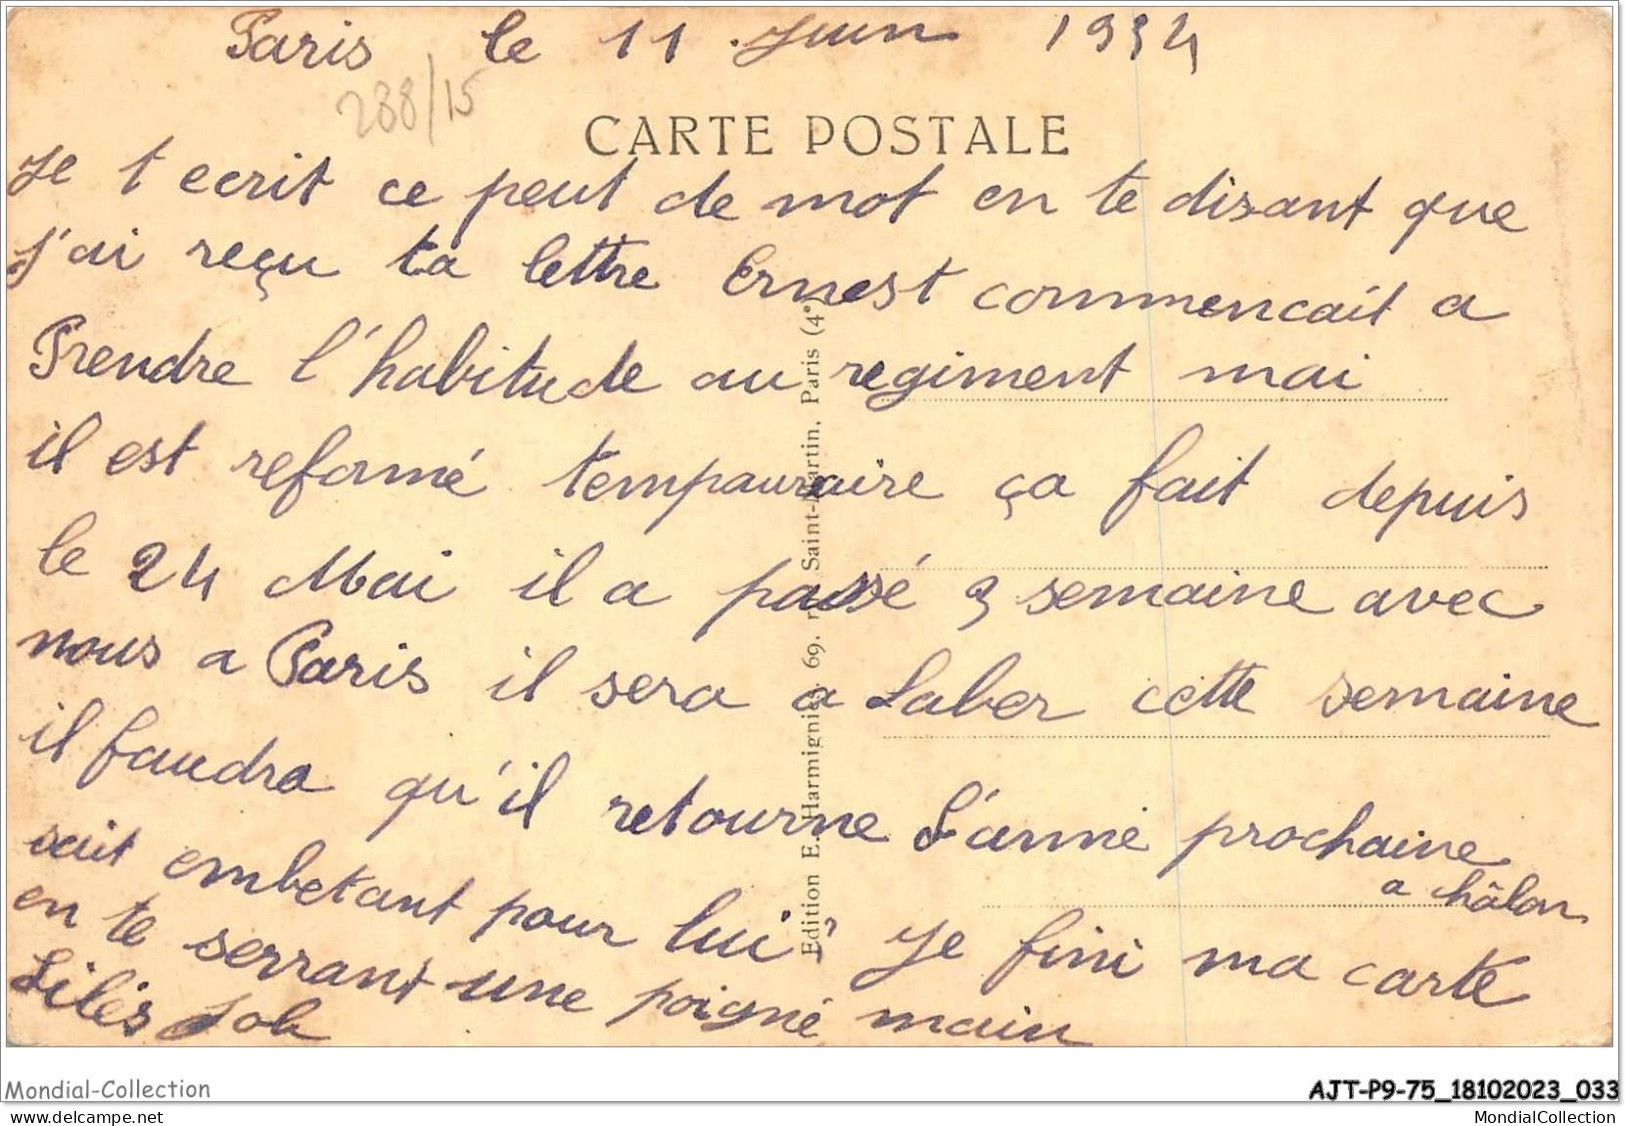 Paris le 11 Juin 1934
288/15
CARTE POSTALE
Je t ecrit ce peut de mot en te disant que
J'ai reçu ta lettre Ernest commencait a
Prendre l'habitude au regiment mai
il est reformé tempauraire ça fait depuis
le 24 Mai il a passé 3 semaine avec
nous a Paris il sera a Laber cette semaine
il faudra qu'il retourne L'anné prochaine
a hâlon
sait embetant pour lui Je fini ma carte
en te serrant une poigné main
Job
Edition E. Harmignies, 69, Saint-Martin, Paris (4e)
Mondial-Collection
AJT-P9-75_18102023_033
MondialCollection